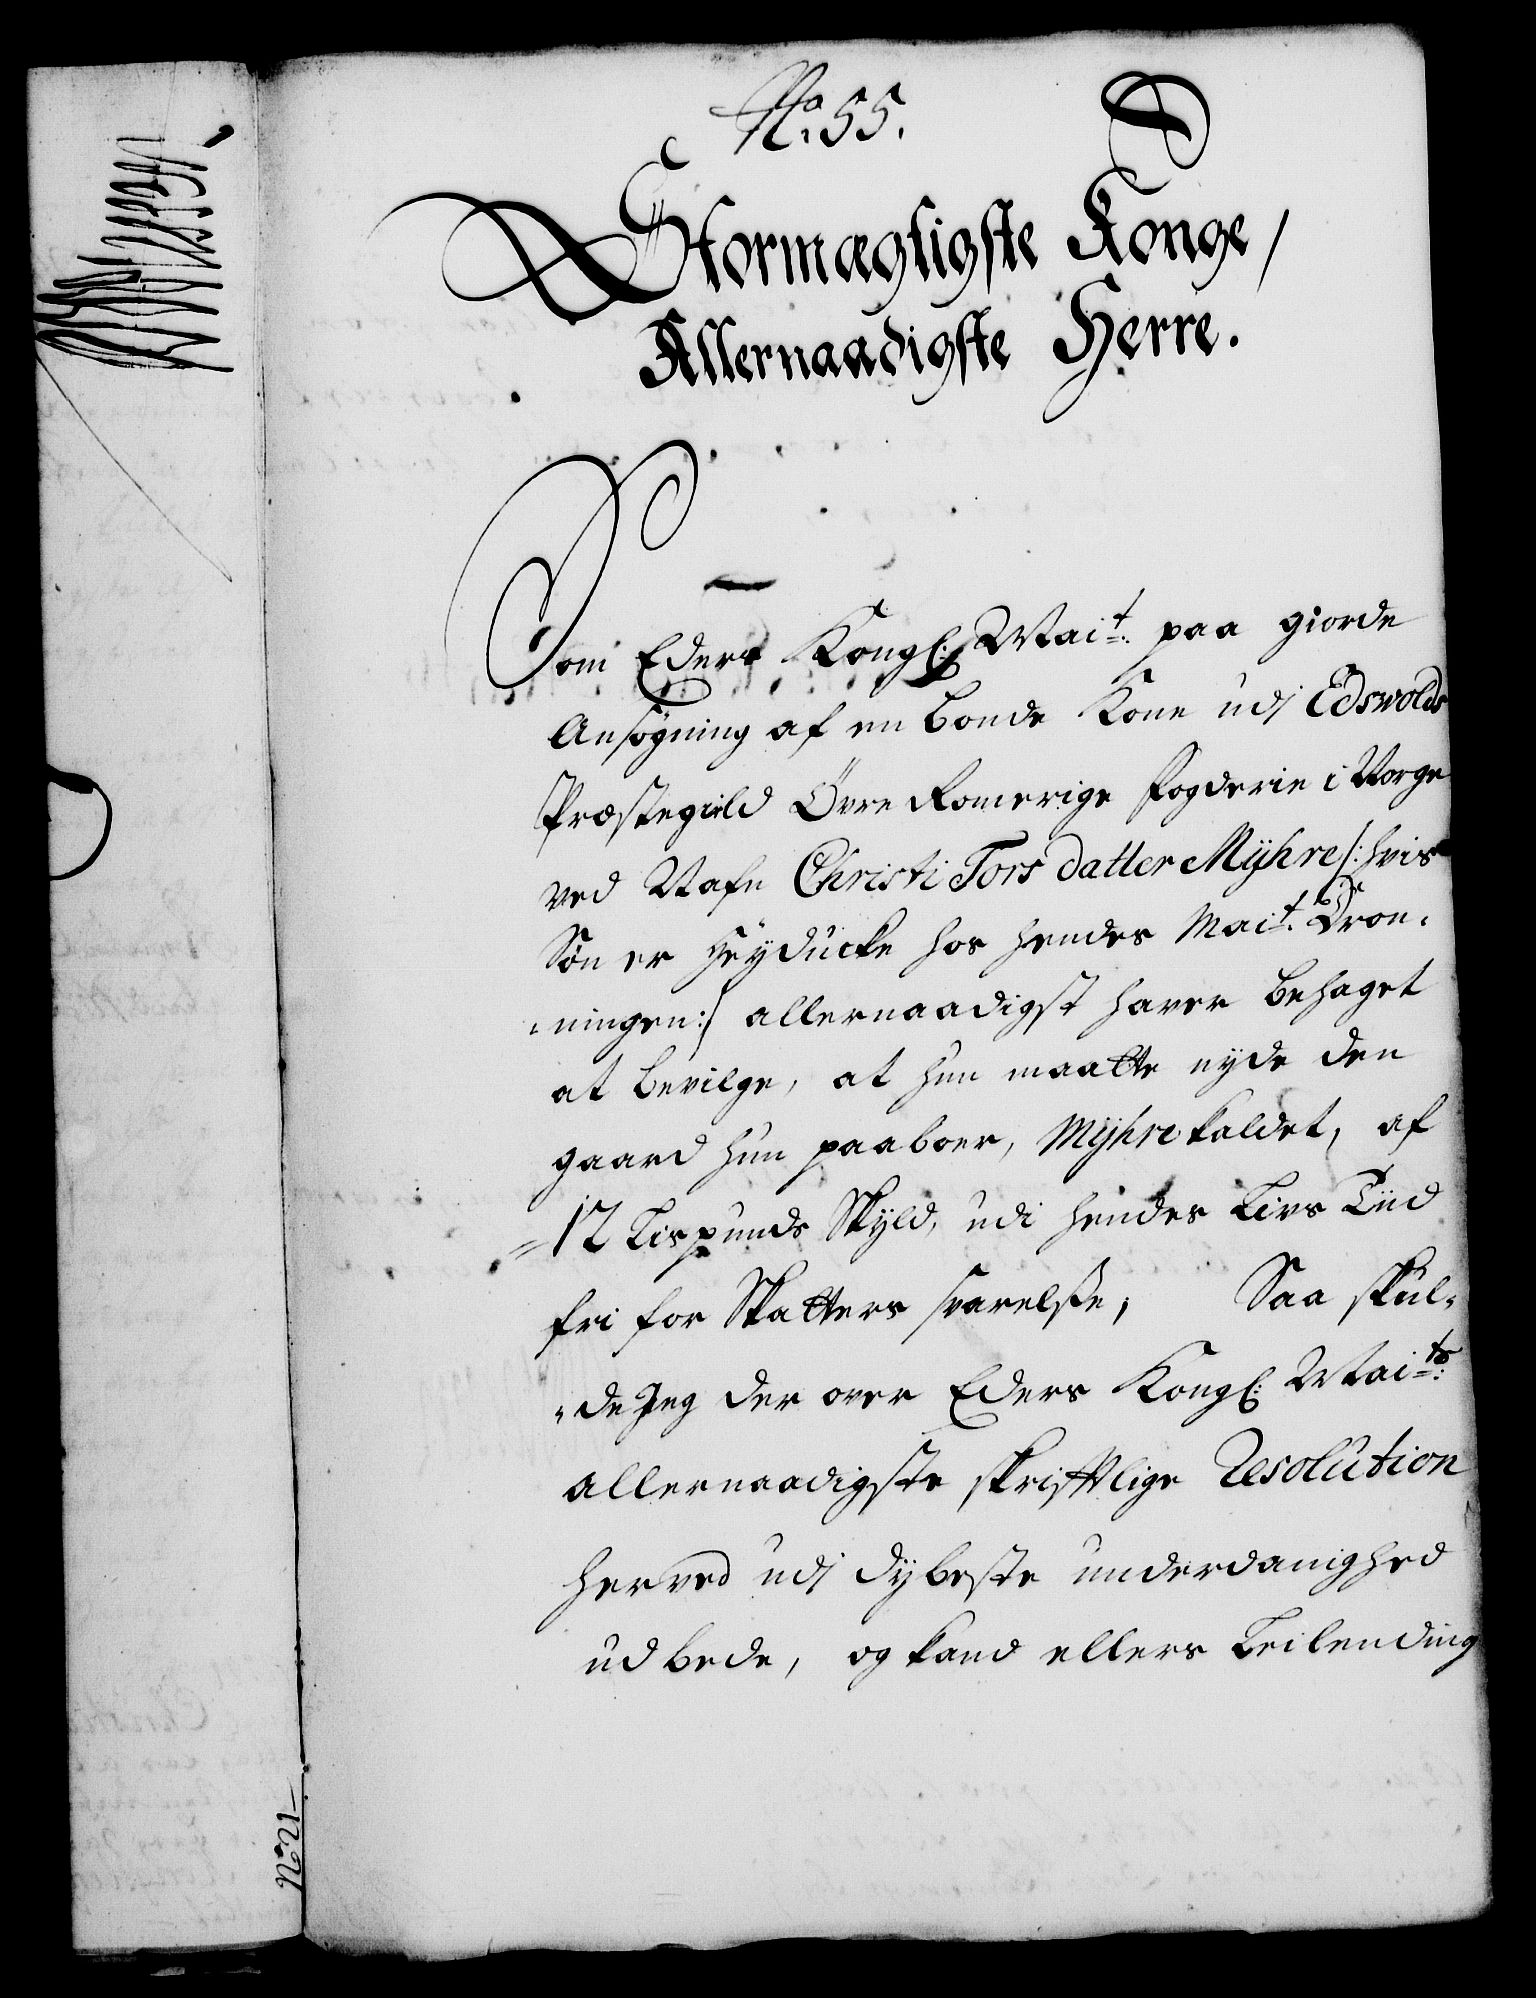 No. 55.
Stormægtigste Konge/
Allernaadigste Herre.
Som Eders Kongl: Mait: paa giorde
Ansøgning af en bonde Kone udj Edswolds
Præstegield Øvre Romerige fogderie i Norge
ved Nafn Christi Tors datter Mÿhre /: hvis
Søn er Heÿducke hos hendes Mait. Dron-
-ningen:/ allernaadigst haver behaget
at bevilge, at hun maatte nyde den
gaard hun paaboer, Mÿhre kaldet, af
=12 Lispunds Skyld, udi hendes Livs Tiid
fri for Skatters svarelsse, Saa skul-
-de Jeg der over Eders Kongl: Maits:
allernaadigste skrifftlige Resolution
herved udj dybeste underdanighed
udbede, og kand ellers Leilending
No. 21